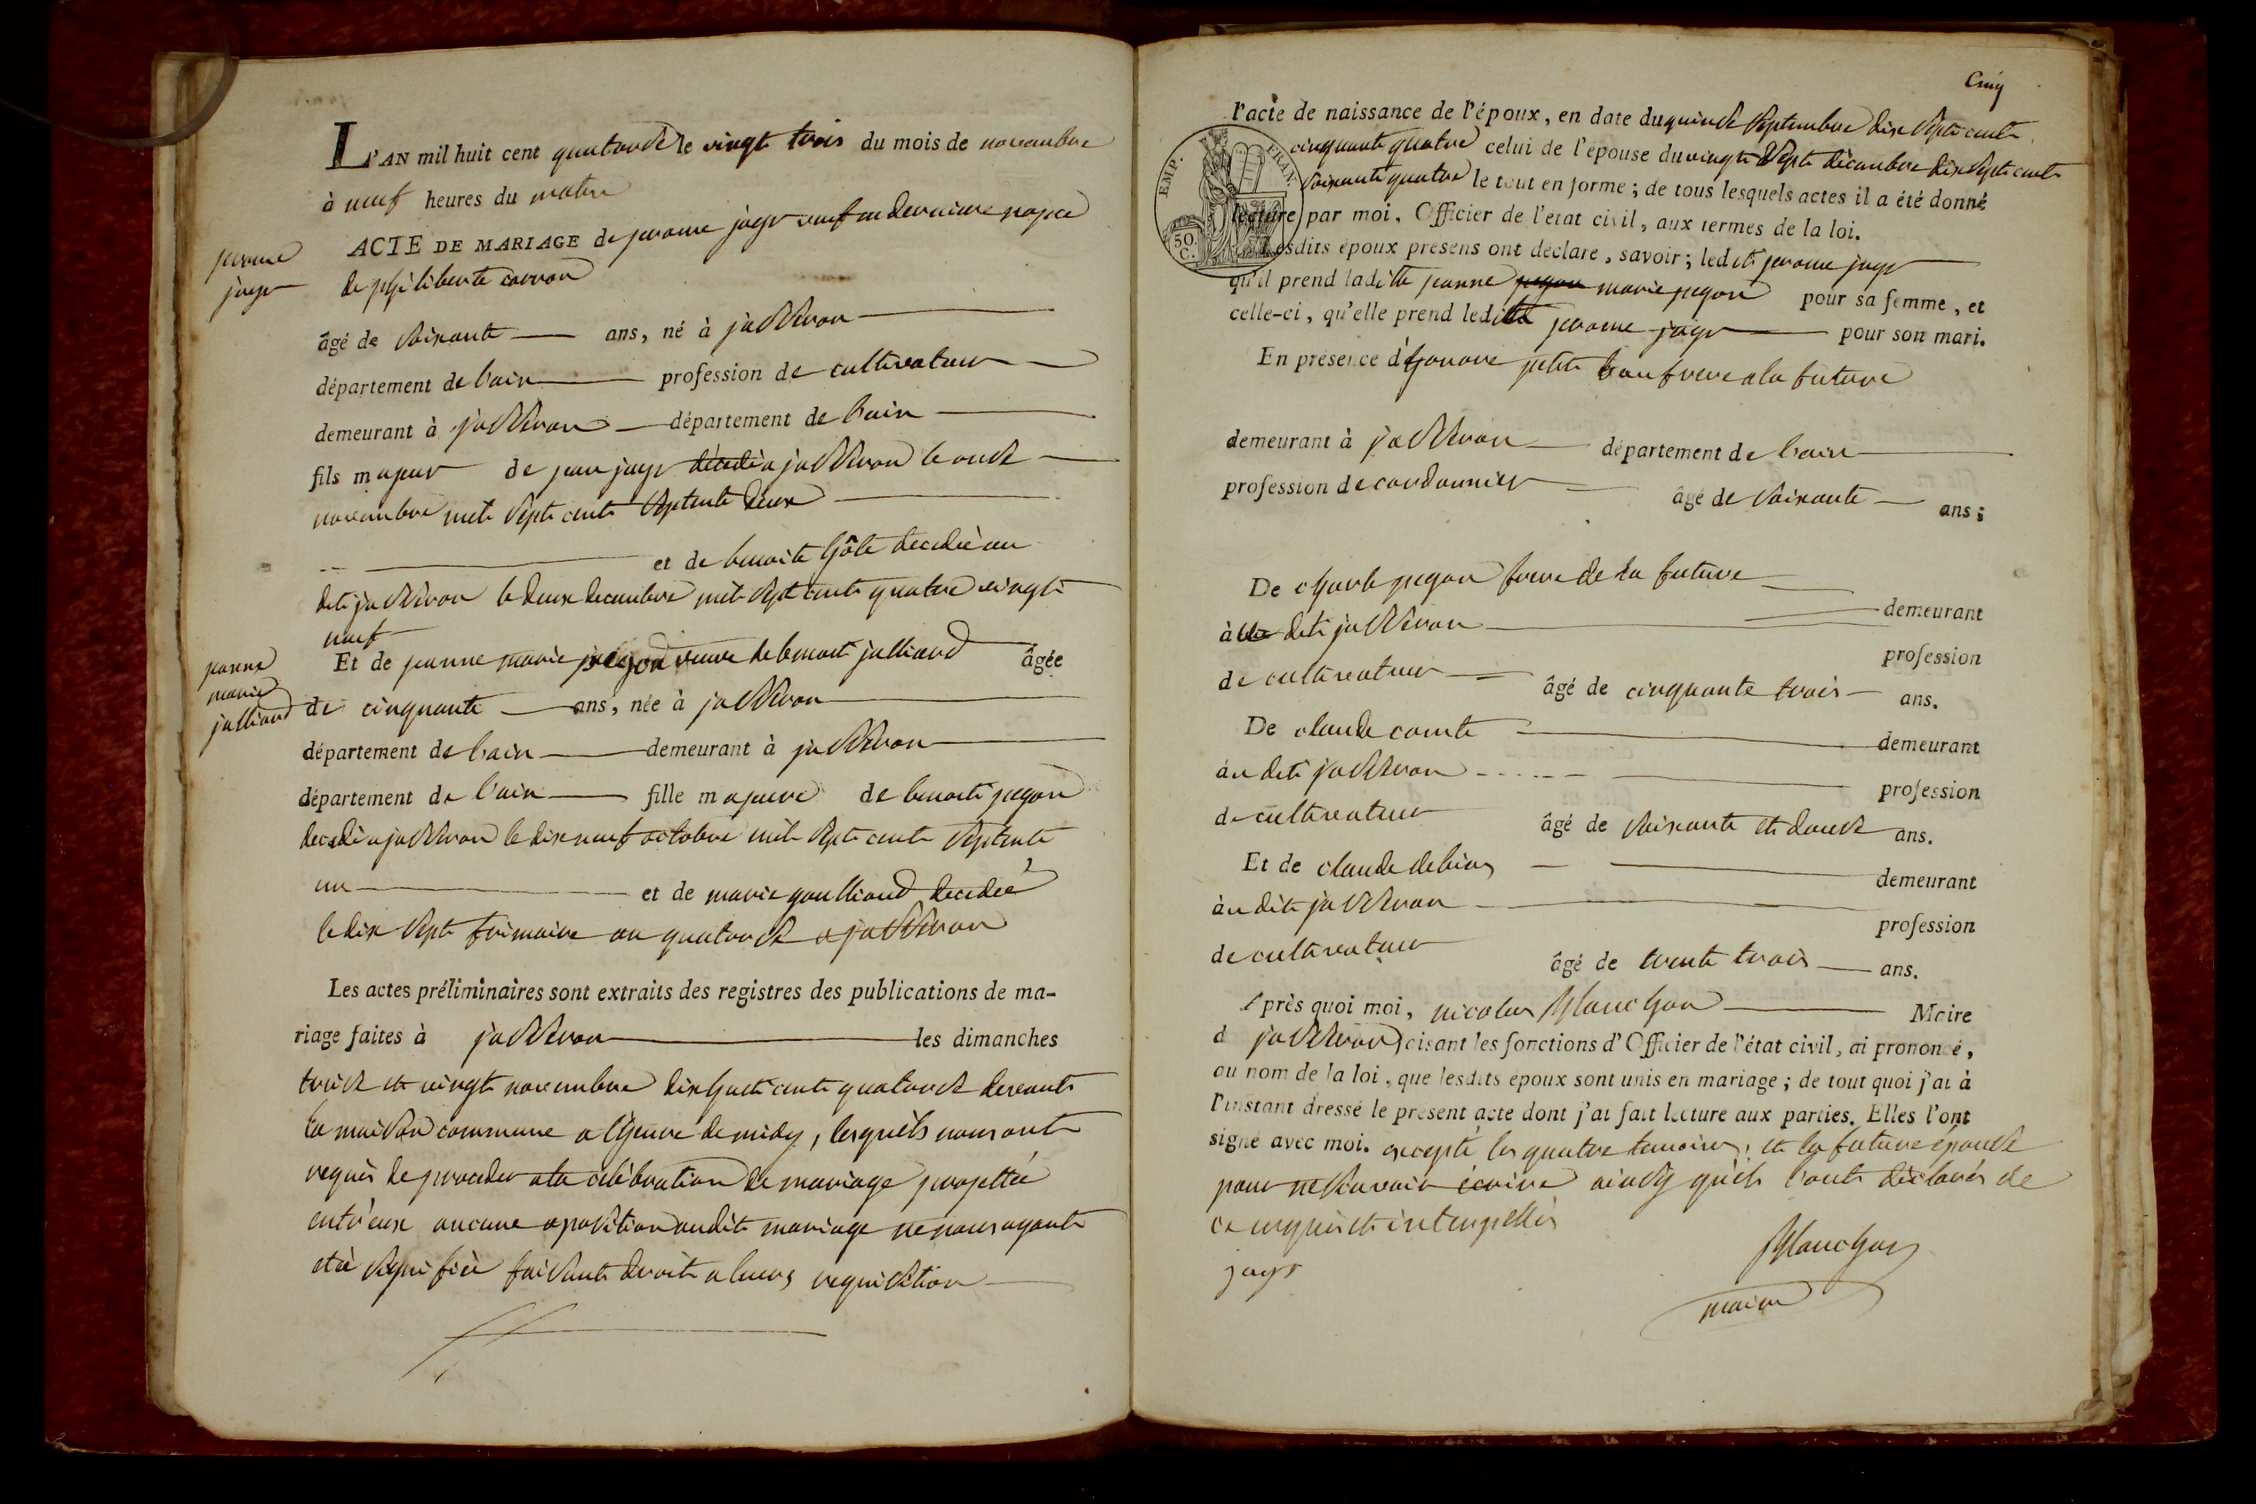 L'AN mil huit cent quatorze le vingt trois du mois de novembre
à neuf heures du matin
ACTE DE MARIAGE de jerome jayr veuf en derniere nopce
jerome
jayr
de philiberte carron
âgé de soixante ans, né à jasseron
département de l'ain profession de cultivateur
demeurant à jasseron département de l'ain
fils majeur de jean jayr décédé a jasseron le onze
novembre mil sept cent septente deux
et de benoite hôte decedée au
dit jasseron le deux decembre mil sept cent quatre vingt
neuf
Et de jeanne marie pegon veuve de benoit julliard âgée
jeanne
marie
julliard
de cinquante ans, née à jasseron
département de l'ain demeurant à jasseron
département de l'ain fille majeure de benoit pegon
decedé a jasseron le dix neuf octobre mil sept cent septente
un et de marie goulliard decedée
le dix sept frimaire an quatorze a jasseron
Les actes préliminaires sont extraits des registres des publications de ma-
riage faites à jasseron les dimanches
treize et vingt novembre dix huit cent quatorze devant
la maison commune a l'heure de midy, lesquels nous ont
requis de proceder a la célébration de mariage projetté
entr'eux aucune oposition audit mariage ne nous ayant
été signifiée faisant droit a leurs requisition
Cinq
l'acte de naissance de l'époux, en date du quinze septembre dix sept cent
cinquante quatre celui de l'épouse du vingt sept décembre dix sept cent
soixante quatre le tout en forme; de tous lesquels actes il a été donné
EMP. FRAN.
50.
C.
lecture par moi, Officier de l'état civil, aux termes de la loi.
Lesdits époux présens ont déclaré, savoir; ledit jerome jayr
qu'il prend laditte jeanne pegon marie pegon pour sa femme, et
celle-ci, qu'elle prend ledit jerome jayr pour son mari.
En présence d'honoré petit beaufrere a la future
demeurant à jasseron département de l'ain
profession de cordonnier âgé de soixante ans;
De charle pegon frere de la future
demeurant
à dit jasseron
profession
de cultivateur âgé de cinquante trois ans.
De claude comte demeurant
àu dit jasseron profession
de cultivateur âgé de soixante et douze ans.
Et de claude debias demeurant
àu dit jasseron profession
de cultivateur âgé de trente trois ans.
Après quoi moi, nicolas planchon Maire
d jasseron faisant les fonctions d'Officier de l'état civil, ai prononcé,
au nom de la loi, que lesdits époux sont unis en mariage; de tout quoi j'ai à
l'instant dressé le présent acte dont j'ai fait lecture aux parties. Elles l'ont
signé avec moi. excepté les quatre temoins, et la future épouze
pour ne savoir écrire ainsy qu'ils l'ont déclarés de
ce requis et interpellés
planchon
jayr
maire